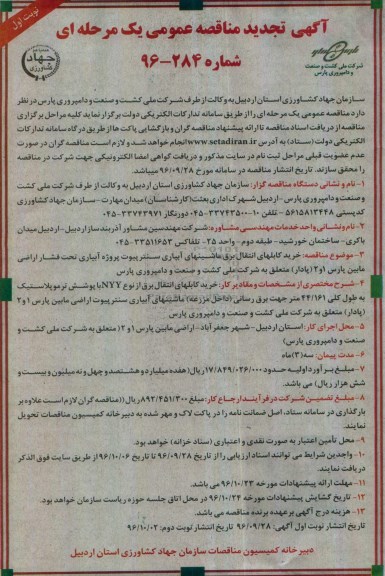 نوبت اول
آگهی تجدید مناقصه عمومی یک مرحله ای
شماره ۲۸۴-۹۶
جهاد کشاورزی
شرکت ملی کشت و صنعت و دامپروری پارس
سازمان جهاد کشاورزی استان اردبیل به وکالت از طرف شرکت ملی کشت و صنعت و دامپروری پارس در نظر
دارد مناقصه عمومی یک مرحله ای را از طریق سامانه تدارکات الکتریکی دولت برگزار نماید کلیه مراحل برگزاری
مناقصه از دریافت اسناد مناقصه تا ارائه پیشنهاد مناقصه گران و بازگشایی پاکت ها از طریق درگاه سامانه تدارکات
الکتریکی دولت (ستاد) به آدرس www.setadiran.ir انجام خواهد شد و لازم است مناقصه گران در صورت
عدم عضویت قبلی مراحل ثبت نام در سایت مذکور و دریافت گواهی امضا الکترونیکی جهت شرکت در مناقصه
را محقق سازند. تاریخ انتشار مناقصه در سامانه مورخ ۹۶/۰۹/۲۸ میباشد.
۱- نام و نشانی دستگاه مناقصه گزار: سازمان جهاد کشاورزی استان اردبیل به وکالت از طرف شرکت ملی کشت
وصنعت و دامپروری پارس - اردبیل شهرک اداری بعثت (کارشناسان) میدان مهارت - سازمان جهاد کشاورزی
کد پستی ۵۶۱۵۸۱۳۴۴۸ - تلفن ۱۰-۳۳۷۴۳۵۰۰-۰۴۵ دورنگار ۳۳۷۴۳۹۷۱-۰۴۵
۲- نام و نشانی واحد خدمات مهندسی مشاوره: شرکت مهندسین مشاور آذربند ساز اردبیل - اردبیل میدان
باکری - ساختمان خورشید - طبقه دوم - واحد ۲۵ - تلفاکس ۳۳۵۱۱۶۵۳-۰۴۵
۳- موضوع مناقصه: خرید کابلهای انتقال برق ماشینهای آبیاری سنترپیوت پروژه آبیاری تحت فشار اراضی
مابین پارس ۱و۲ (پادار) متعلق به شرکت ملی کشت و صنعت و دامپروری پارس
۴- شرح مختصری از مشخصات و مقادیر کار: خرید کابلهای انتقال برق از نوع NYY با پوشش ترموپلاستیک
به طول کلی ۴۴/۱۶۱ متر جهت برق رسانی (داخل مزرعه) ماشینهای آبیاری سنترپیوت اراضی مابین پارس ۱ و ۲
(پادار) متعلق به شرکت ملی کشت و صنعت و دامپروری پارس
۵- محل اجرای کار: استان اردبیل - شهر جعفر آباد - اراضی مابین پارس ۱ و ۲ ( متعلق به شرکت ملی کشت و
صنعت و دامپروری پارس)
۶- مدت پیمان: سه (۳) ماه
۷- مبلغ برآورد اولیه حدود ۱۷/۸۴۹/۰۲۶/۰۰۰ ریال (هفده میلیارد و هشتصد و چهل و نه میلیون و بیست و
شش هزار ریال) می باشد.
۸- مبلغ تضمین شرکت در فرآیند ارجاع کار: مبلغ ۸۹۲/۴۵۱/۳۰۰ ریال (مناقصه گران لازم است علاوه بر
بارگذاری در سامانه ستاد، اصل ضمانت نامه را در پاکت لاک و مهر شده به دبیرخانه کمیسیون مناقصات تحویل
نمایند.
۹- محل تأمین اعتبار به صورت نقدی و اعتباری (سناد خزانه) خواهد بود.
۱۰- واجدین شرایط می توانند اسناد ارزیابی را از تاریخ ۹۶/۰۹/۲۸ تا تاریخ ۹۶/۱۰/۰۶ از طریق سایت فوق الذکر
دریافت نمایند.
۱۱- مهلت ارائه پیشنهادات مورخه ۹۶/۱۰/۲۳ می باشد.
۱۲- تاریخ گشایش پیشنهادات مورخه ۹۶/۱۰/۲۴ در محل اتاق جلسه حوزه ریاست سازمان خواهد بود.
۱۳- هزینه درج آگهی بر عهده برنده مناقصه می باشد.
تاریخ انتشار نوبت اول آگهی: ۹۶/۰۹/۲۸ تاریخ انتشار نوبت دوم: ۹۶/۱۰/۰۲
دبیرخانه کمیسیون مناقصات سازمان جهاد کشاورزی استان اردبیل